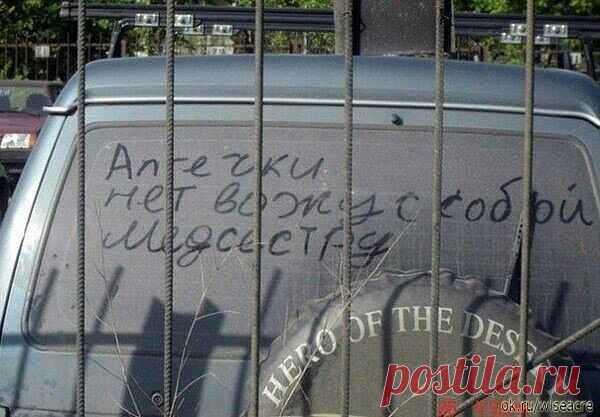 Аптечки
нет вожу с собой
медсестру
HERO OF THE DESE
postila.ru
ok.ru/wiseacre